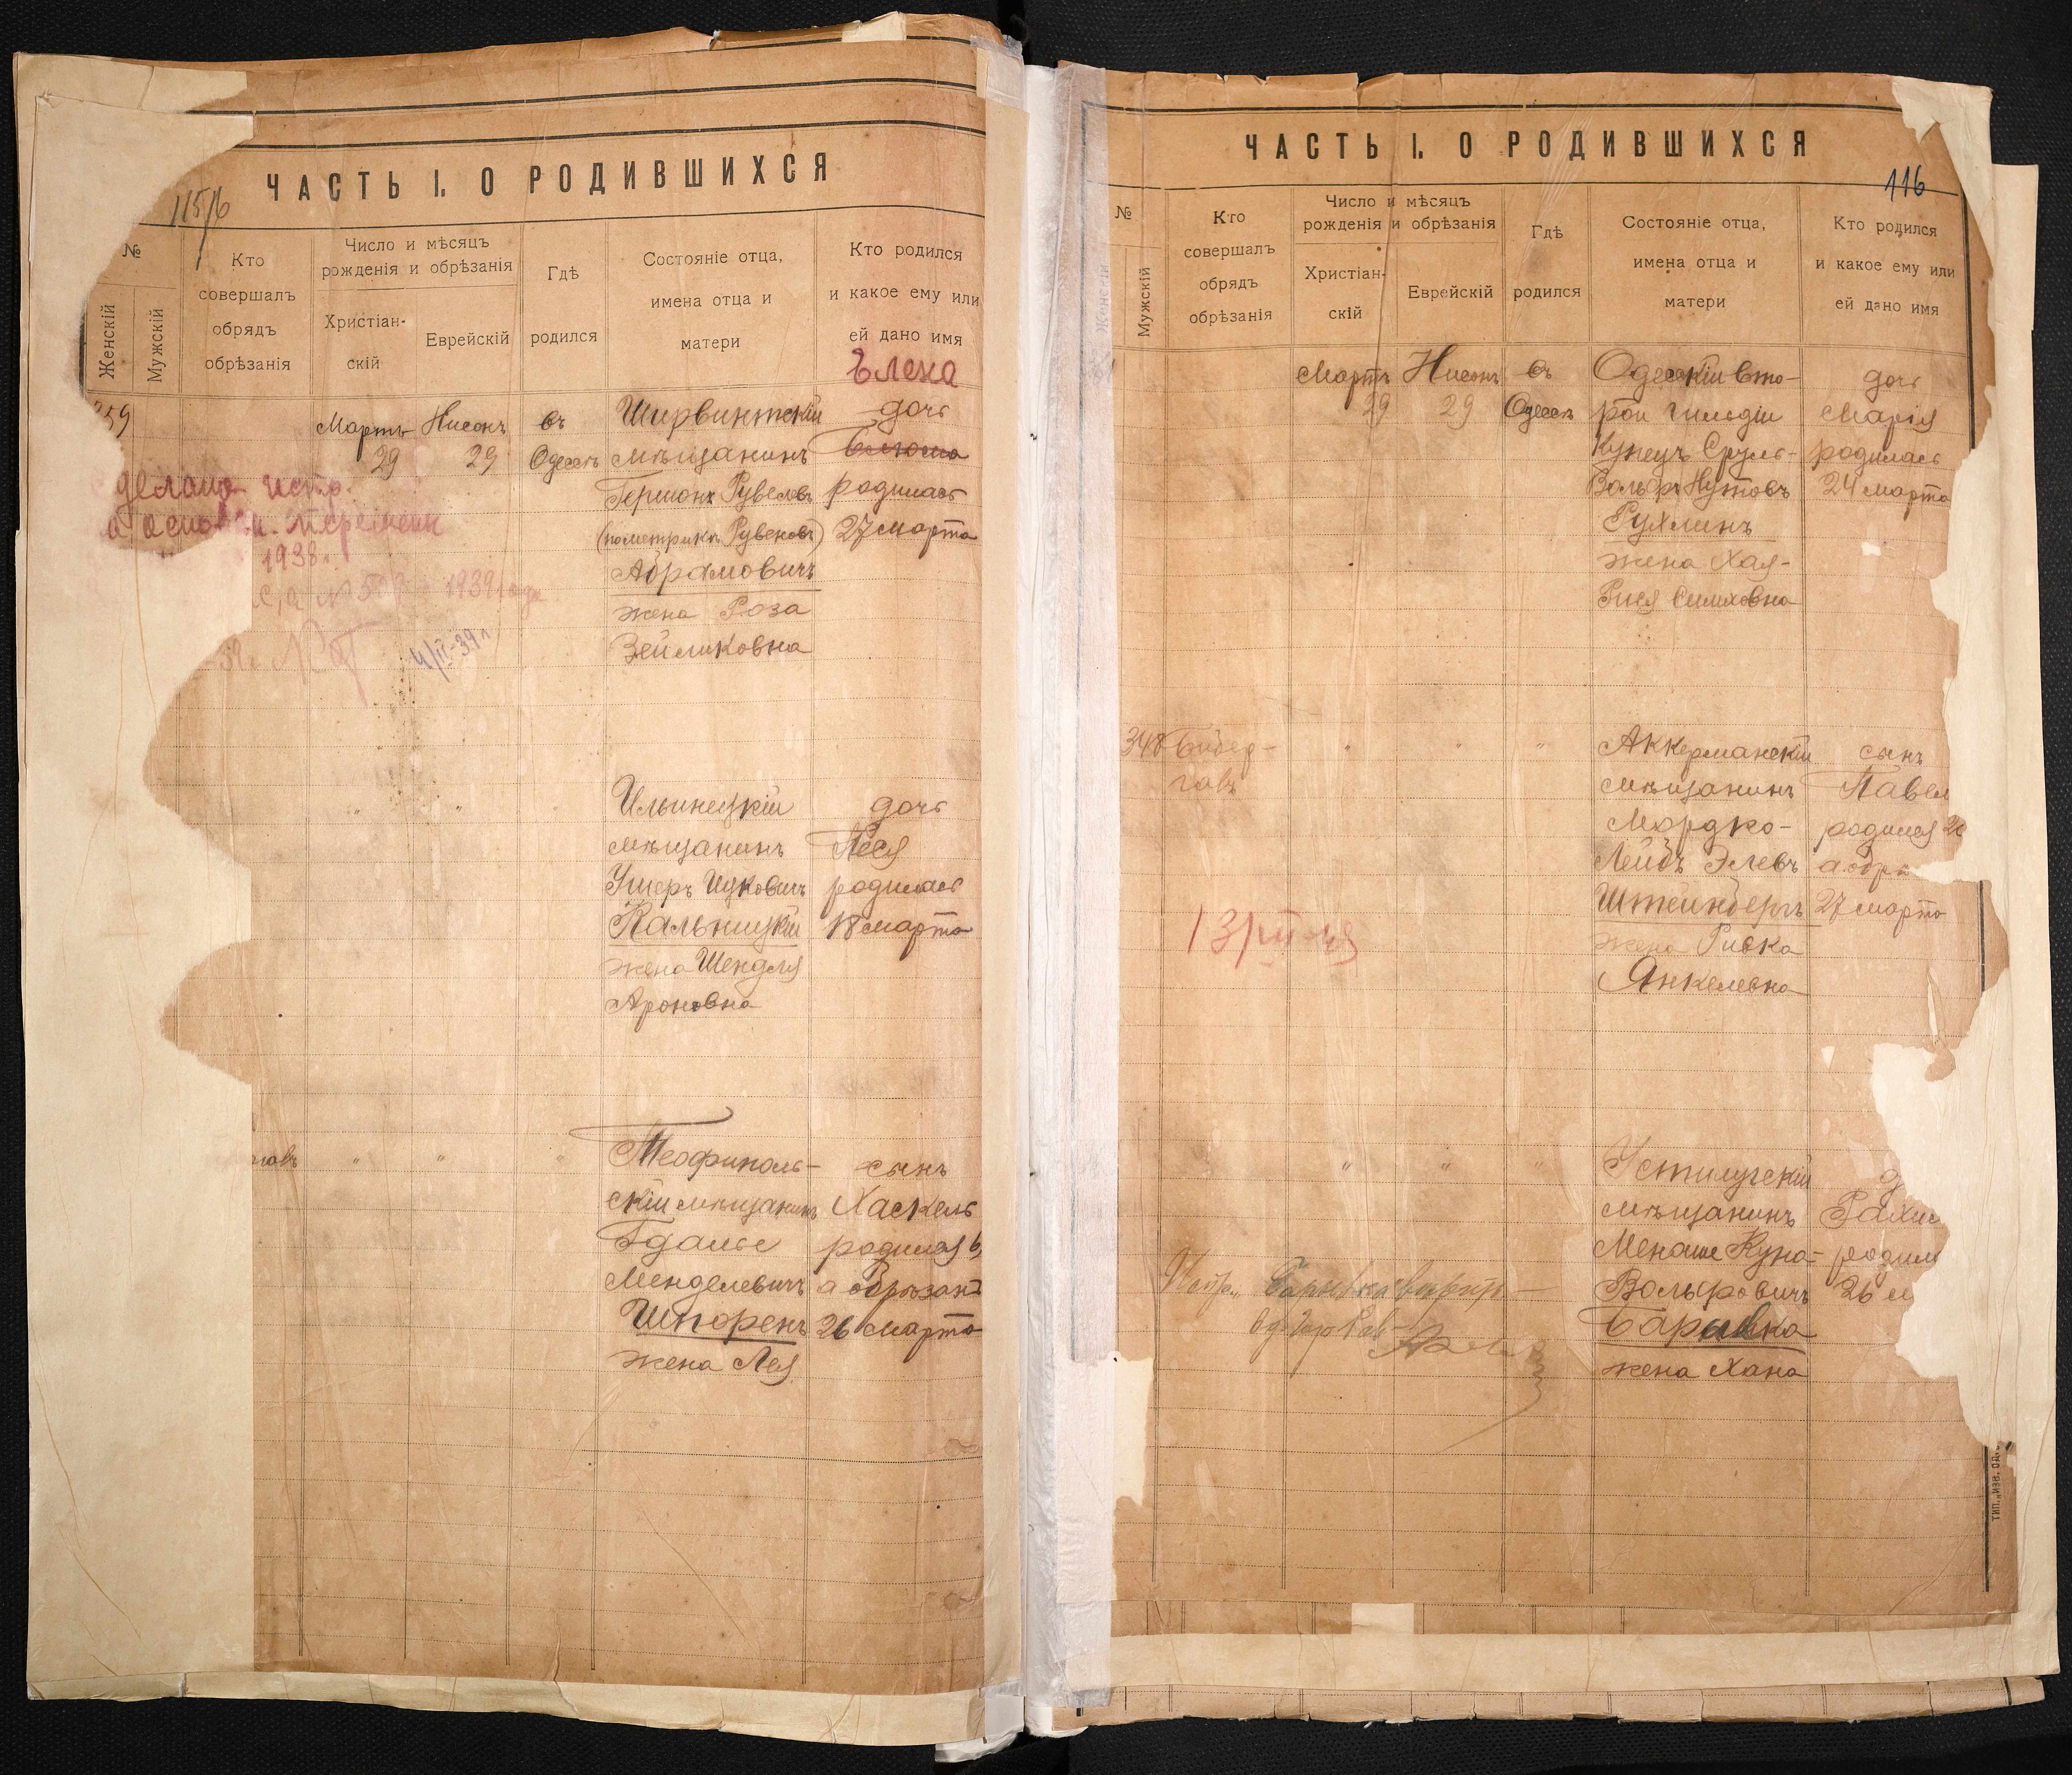 ЧАСТЬ I. О РОДИВШИХСЯ
115/б
№
Женскій
Мужскій
Кто
совершалъ
обрядъ
обрѣзанія
Число и мѣсяцъ
рожденія и обрѣзанія
Христіан-
скій
Еврейскій
Гдѣ
родился
Состояніе отца,
имена отца и
матери
Кто родился
и какое ему или
ей дано имя
Елена
Мартъ
29
Нисонъ
29
въ
Одессѣ
Ширвинтскій
мѣщанинъ
Гершонъ Рувелевъ
(по метрикѣ Рувеновъ)
Абрамовичъ
жена Роза
Зейликовна
дочь
Блюма
родилась
27 марта
1938 г.
№ 509 1939 года
4/II-39 г.
" "
Ильинецкій
мѣщанинъ
Ушеръ Ицковичъ
Кальницкій
жена Шендля
Ароновна
дочь
Песя
родилась
18 марта
" " "
Теофиполь-
скій мѣщанинъ
Гдалье
Менделевичъ
Шпоренъ
жена Лея
сынъ
Хаскель
родился
а обрѣзанъ
26 марта
ЧАСТЬ I. О РОДИВШИХСЯ
116
№
Женскій
Мужскій
Кто
совершалъ
обрядъ
обрѣзанія
Число и мѣсяцъ
рожденія и обрѣзанія
Христіан-
скій
Еврейскій
Гдѣ
родился
Состояніе отца,
имена отца и
матери
Кто родился
и какое ему или
ей дано имя
Мартъ
29
Нисонъ
29
въ
Одессѣ
Одесскій вто-
рой гильдіи
купецъ Сруль-
Вольфъ Нутовъ
Рухлинъ
жена Хая-
Рися Симховна
дочь
Марія
родилась
24 марта
348
" " "
Аккерманскій
мѣщанинъ
Мордко-
Лейбъ Элевъ
Штейнбергъ
жена Ривка
Янкелевна
сынъ
Павел
родился
а обр
27 марта
" " "
Устилугскій
мѣщанинъ
Менаше Куна-
Вольфовичъ
Барывка
жена Хана
д
Рахи
родил
26 м
тип. „изв. од.